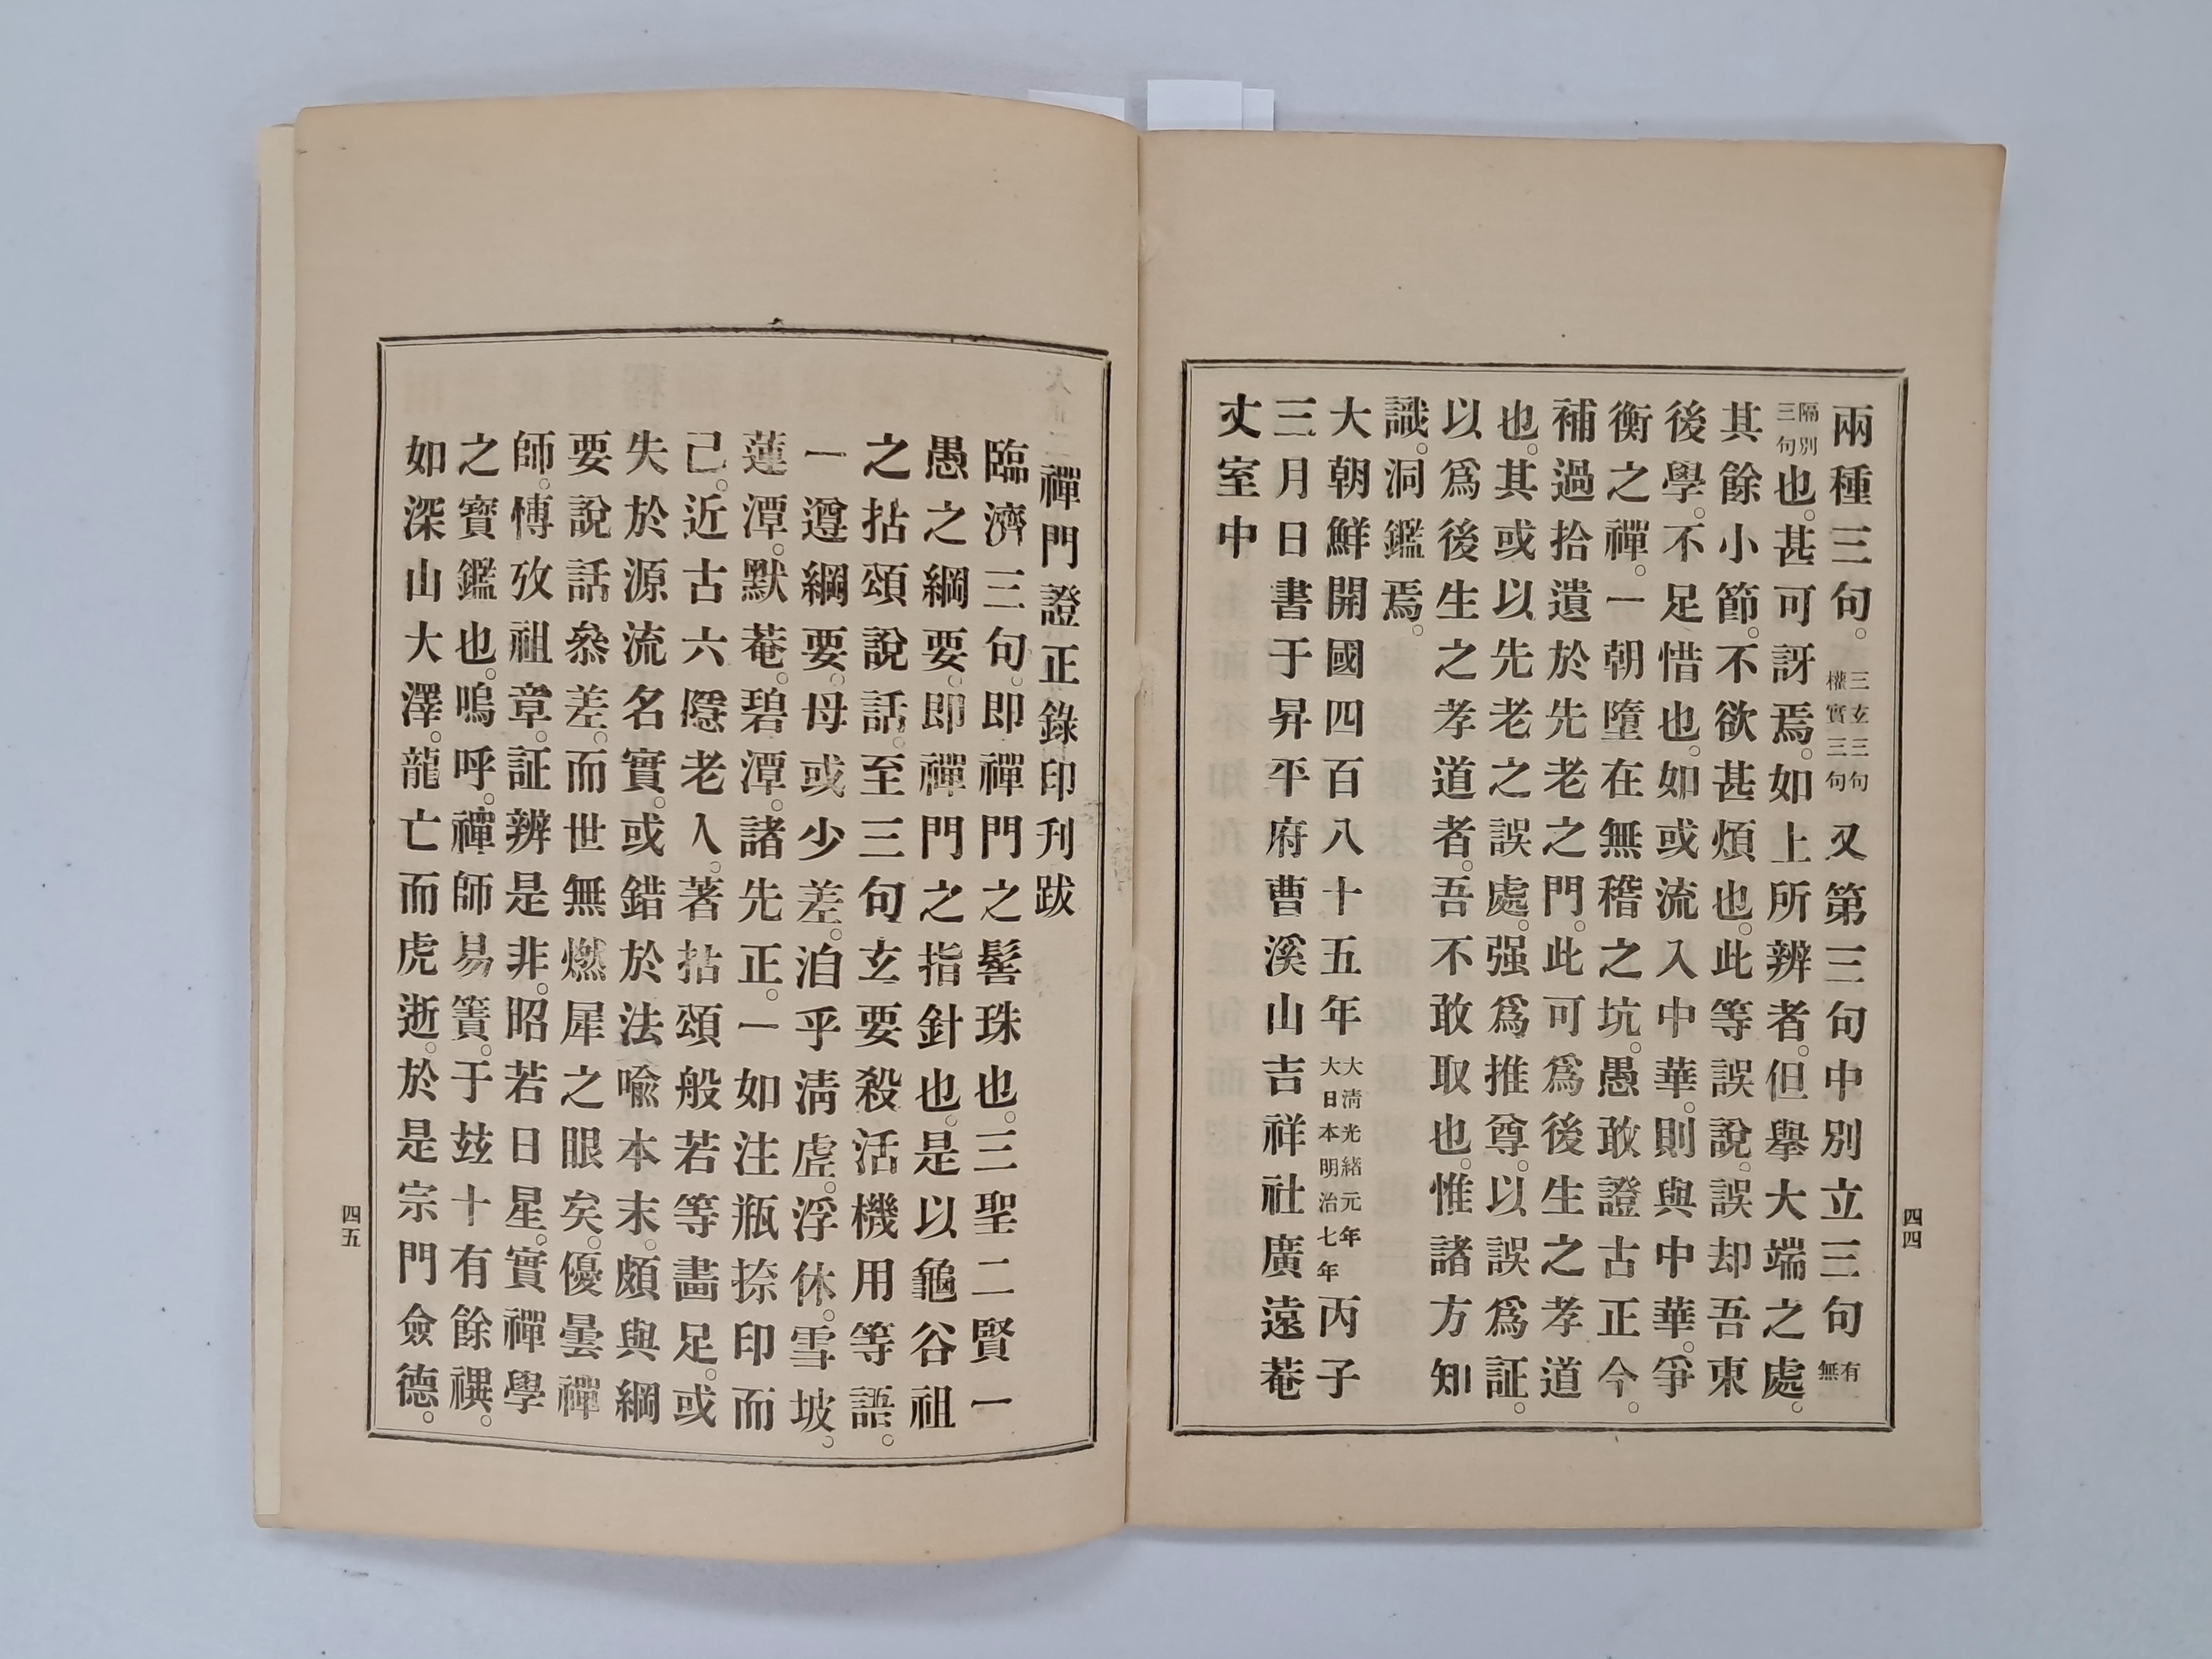 兩種三句。三玄三句權實三句又第三句中別立三句有無
隔別三句也。甚可訝焉。如上所辨者。但擧大端之處。
其餘小節。不欲甚煩也。此等誤說。誤却吾東
後學。不足惜也。如或流入中華。則與中華。爭
衡之禪。一朝墮在無稽之坑。愚敢證古正今。
補過拾遺於先老之門。此可爲後生之孝道
也。其或以先老之誤處。强爲推尊。以誤爲証。
以爲後生之孝道者。吾不敢取也。惟諸方知
識。洞鑑焉。
大朝鮮開國四百八十五年大淸光緖元年大日本明治七年丙子
三月日書于昇平府曹溪山吉祥社廣遠菴
丈室中
四四
禪門證正錄印刊跋
臨濟三句。即禪門之髻珠也。三聖二賢一
愚之綱要。即禪門之指針也。是以龜谷祖
之拈頌說話。至三句玄要殺活機用等語。
一遵綱要。母或少差。洎乎淸虛。浮休。雪坡。
蓮潭。默菴。碧潭。諸先正。一如注瓶捺印而
己。近古六隱老人。著拈頌般若等畵足。或
失於源流名實。或錯於法喩本末。頗與綱
要說話叅差。而世無燃犀之眼矣。優曇禪
師。慱攷祖章。証辨是非。昭若日星。實禪學
之寶鑑也。嗚呼。禪師易簀。于玆十有餘禩。
如深山大澤。龍亡而虎逝。於是宗門僉德。
四五